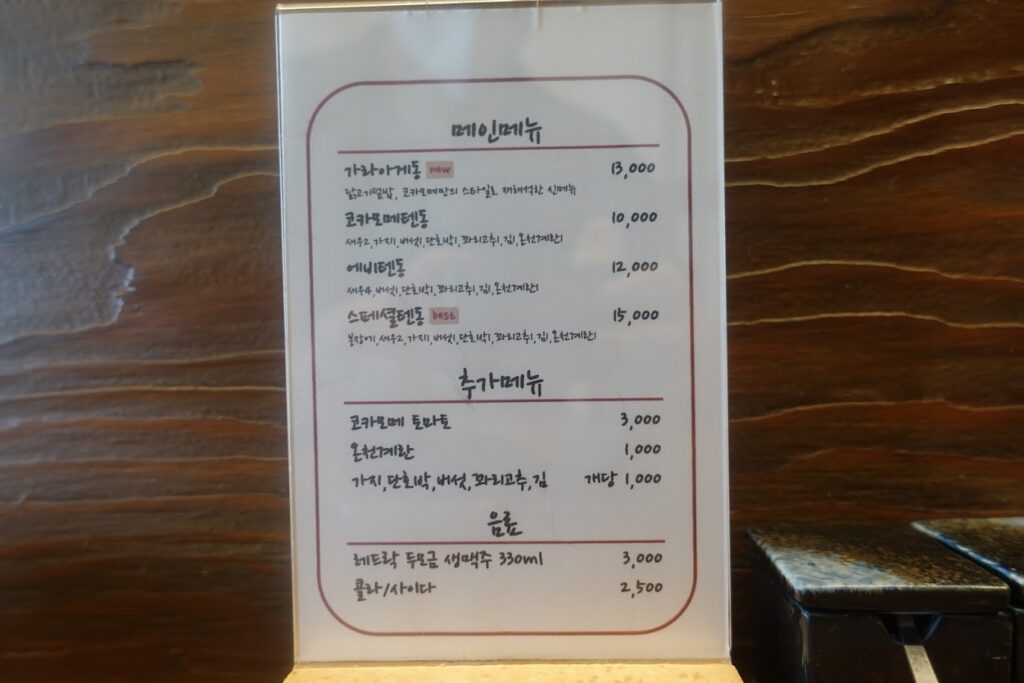 메인메뉴
가라아게동 new 13,000
닭고기덮밥, 코카모메만의 스타일로 재해석한 신메뉴
코카모메텐동 10,000
새우2,가지1,버섯1,단호박1,꽈리고추1,김1,온천계란1
에비텐동 12,000
새우4,버섯1,단호박1,꽈리고추1,김1,온천계란1
스페셜텐동 best 15,000
붕장어1,새우2,가지1,버섯1,단호박1,꽈리고추1,김1,온천계란1
추가메뉴
코카모메 토마토 3,000
온천계란 1,000
가지,단호박,버섯,꽈리고추,김 개당 1,000
음료
레드락 두모금 생맥주 330ml 3,000
콜라/사이다 2,500